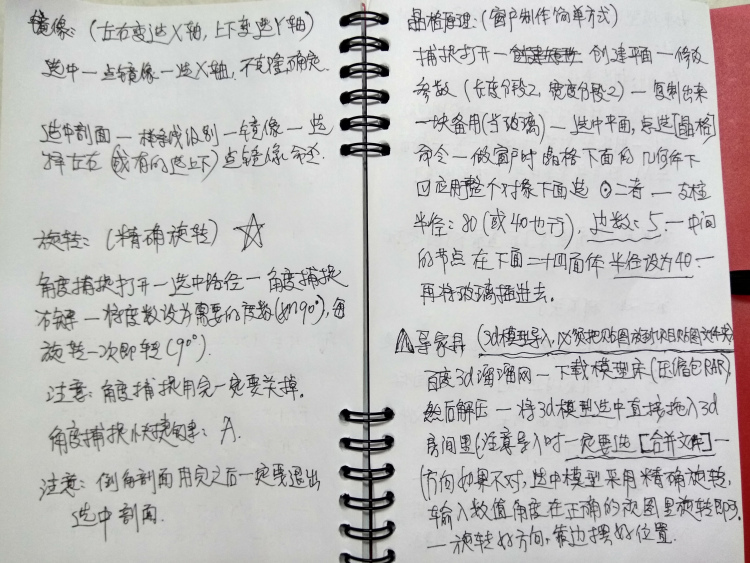 镜像:(左右变选X轴,上下变选Y轴)
选中一点镜像一选X轴,不克隆,确定.
选中剖面一样条线级别一镜像一选
择左右(或有的选上下)点镜像命令.
旋转:(精确旋转)☆
角度捕捉打开一选中路径一角度捕捉
右键一将度数设为需要的度数(如90°),每
旋转一次即转(90°).
注意:角度捕捉用完一定要关掉.
角度捕捉快捷键:A.
注意:倒角剖面用完之后一定要退出
选中剖面.
晶格原理:(窗户制作简单方式)
捕捉打开一创建平面一修改
参数(长度分段2,宽度分段2)一复制出来
一块备用(当玻璃)一选中平面,点选[晶格]
命令一做窗户时晶格下面的几何体下
四应用整个对象下面选⊙二者一支柱
半径:80(或40也行),边数:5.一中间
的节点在下面二十四面体半径设为40一
再将玻璃插进去.
导家具(3d模型导入,必须把贴图放到项目贴图文件夹)
百度3d溜溜网一下载模型床(压缩包RAR),
然后解压一将3d模型选中直接拖入3d
房间里(注意导入时一定要选[合并文件]一
(方向如果不对,选中模型采用精确旋转,
输入数值角度在正确的视图里旋转即可.
一旋转好方向,靠边摆好位置.